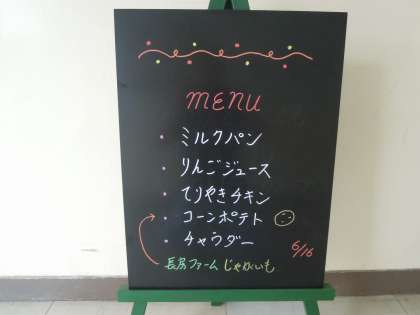 menu
・ミルクパン
・りんごジュース
・てりやきチキン
・コーンポテト
・チャウダー
6/16
長房ファーム じゃがいも